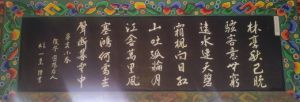 林亭秋已晚
騷客意無窮
遠水連天碧
霜楓向日紅
山吐孤輪月
江含萬里風
塞鴻何處去
聲斷暮雲中